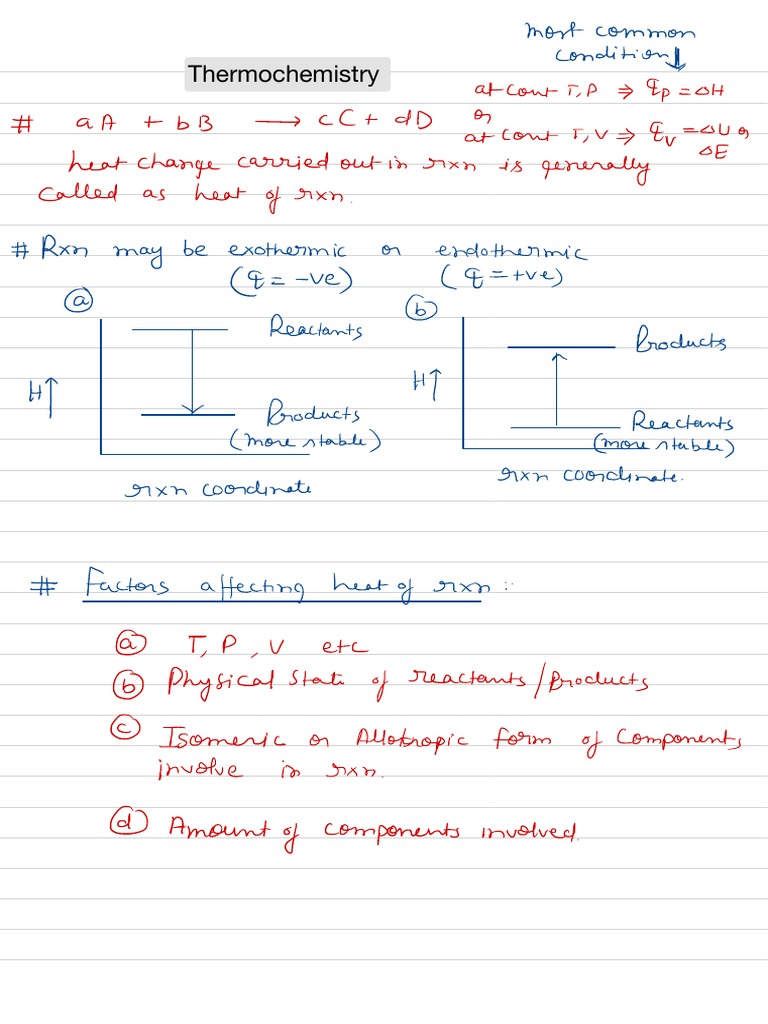 most common
condition ↓
Thermochemistry
at const T, P ⇒ q_P = ΔH
# aA + bB ⟶ cC + dD
or
at const T, V ⇒ q_V = ΔU or
ΔE
heat change carried out in rxn is generally
called as heat of rxn.
# Rxn may be exothermic or endothermic
(q = -ve) (q = +ve)
(a)
Reactants
H↑
Products
(more stable)
rxn coordinate
(b)
Products
H↑
Reactants
(more stable)
rxn coordinate.
# Factors affecting heat of rxn :
(a) T, P, V etc
(b) Physical State of reactants/Products
(c) Isomeric or Allotropic form of Components
involve in rxn.
(d) Amount of components involved.